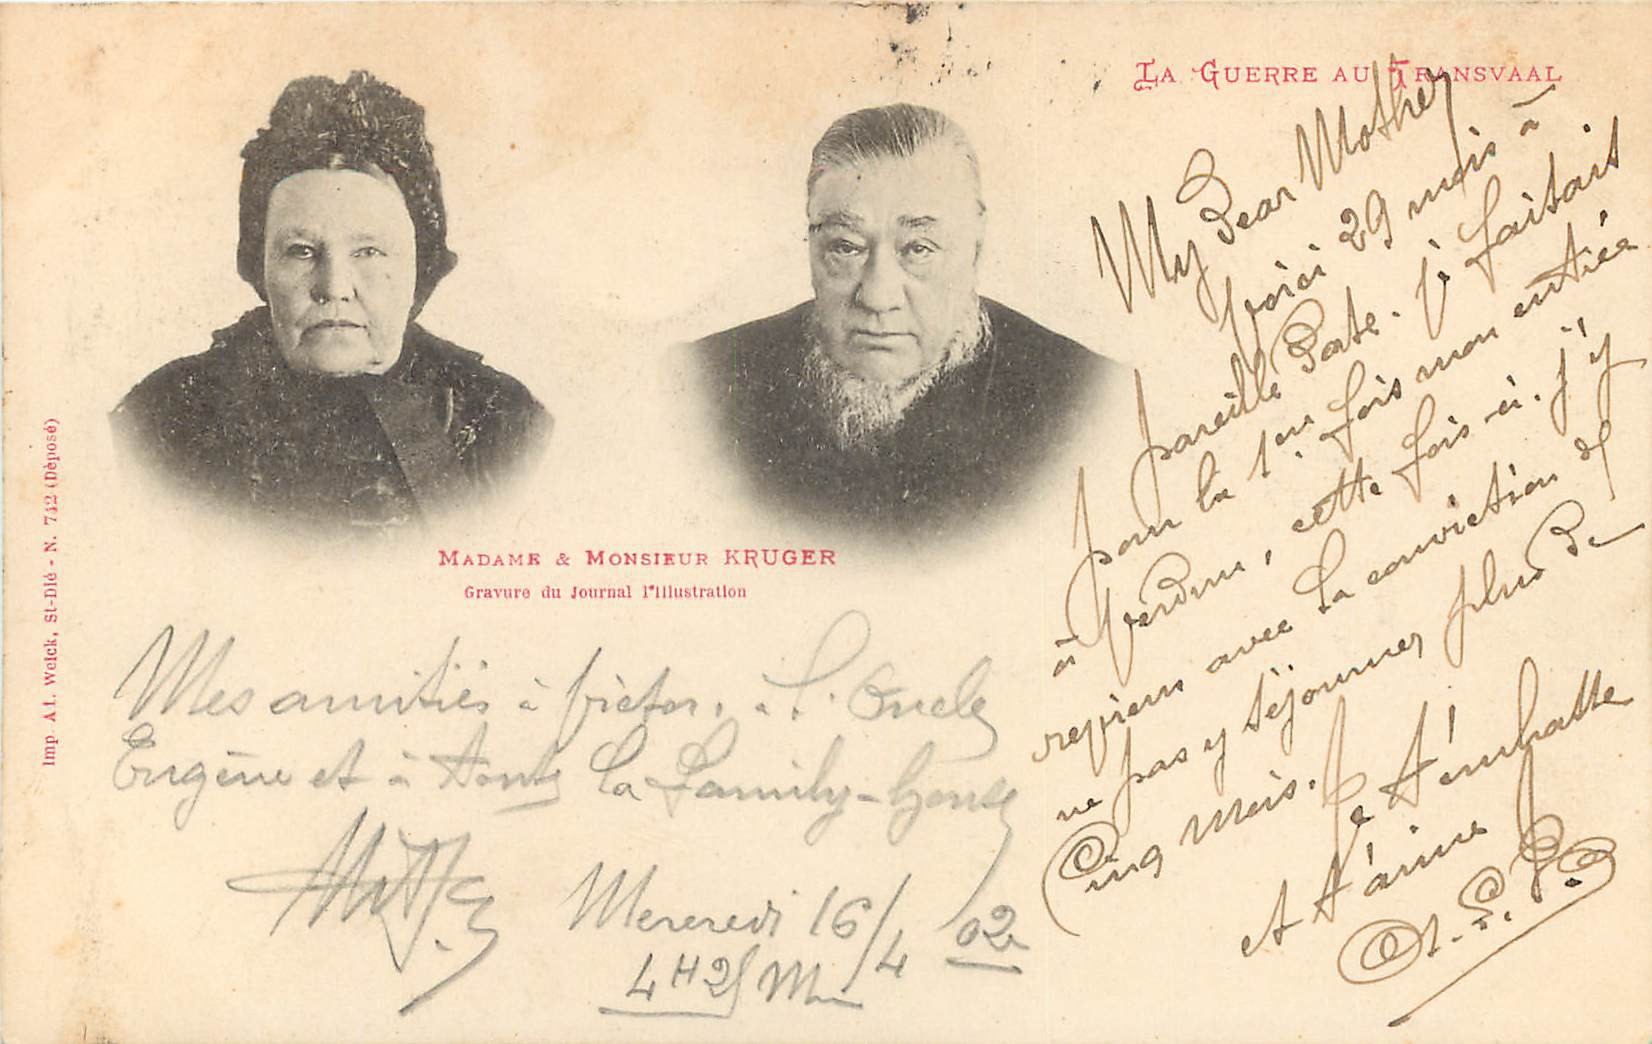 LA GUERRE AU TRANSVAAL
My Dear Mother
Voici 29 mois à
pareille Date. je faisais
pour la 1ère fois mon entrée
à Verdun, cette fois-ci. j'y
reviens avec la conviction de
ne pas y séjourner plus de
Cinq mois. Je t'embrasse
et t'aime
MADAME & MONSIEUR KRUGER
Gravure du Journal l'Illustration
Imp Al. Weick, St-Dié - N. 742 (Déposé)
Mes amitiés à Victor. à l'Oncle
Eugène et à tout la Family-House
Mercredi 16/4 02
4H25 M